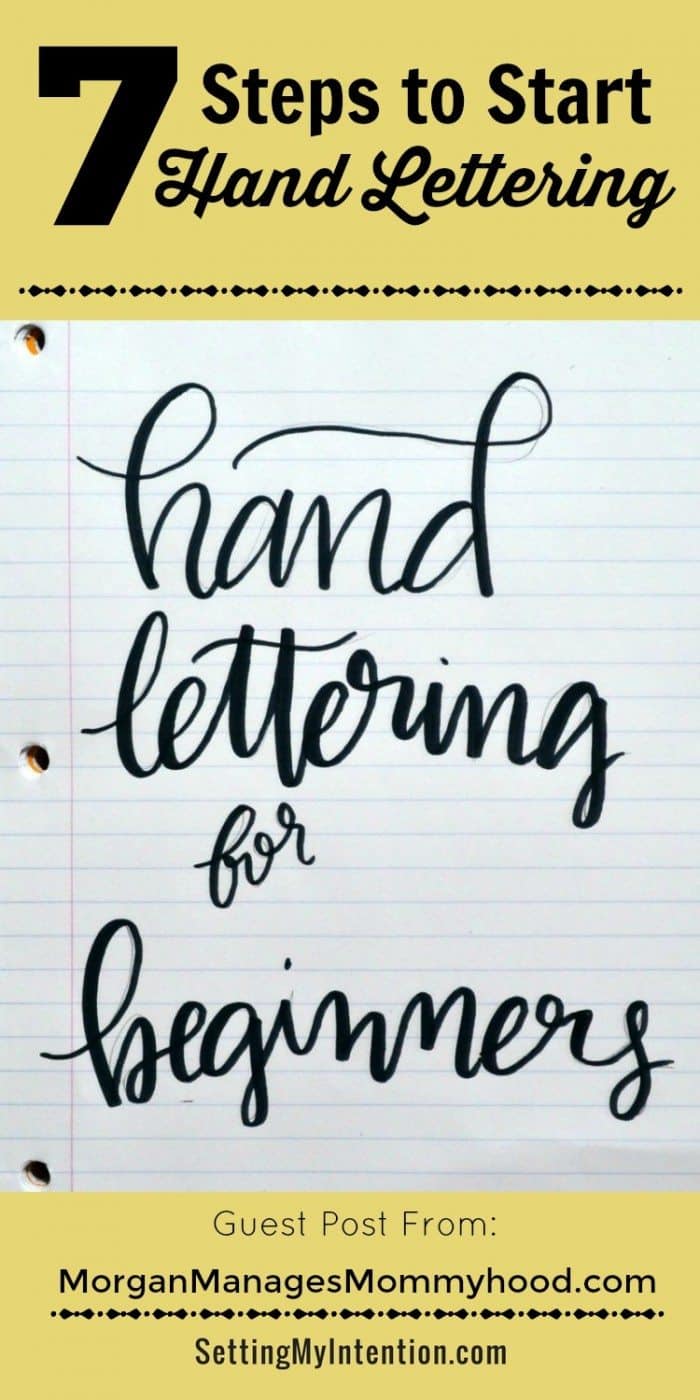 7 Steps to Start
Hand Lettering
hand
lettering
for
beginners
Guest Post From:
MorganManagesMommyhood.com
SettingMyIntention.com